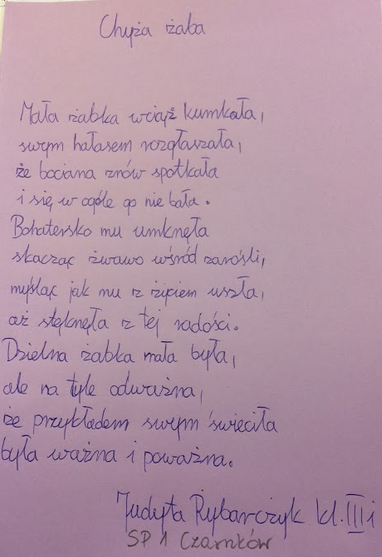 Chyża żaba
Mała żabka wciąż kumkała,
swym hałasem rozgłaszała,
że bociana znów spotkała
i się w ogóle go nie bała.
Bohatersko mu umknęła
skacząc żwawo wśród zarośli,
myśląc jak mu z życiem uszła,
aż stęknęła z tej radości.
Dzielna żabka mała była,
ale na tyle odważna,
że przykładem swym świeciła
była ważna i poważna.
Judyta Rybarczyk kl. III i
SP 1 Czarnków